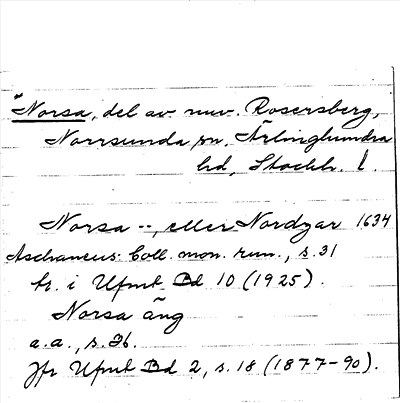 *Norsa, del av nuv. Rosersberg,
Norrsunda sn, Ärlinghundra
hd, Stockh. l.
Norsa --, eller Nordzar 1634
Aschaneus: Coll. mon. run., s. 31
tr. i Ufmt Bd 10 (1925).
Norsa äng
a.a., s. 36.
Jfr Ufmt Bd 2, s. 18 (1877-90).